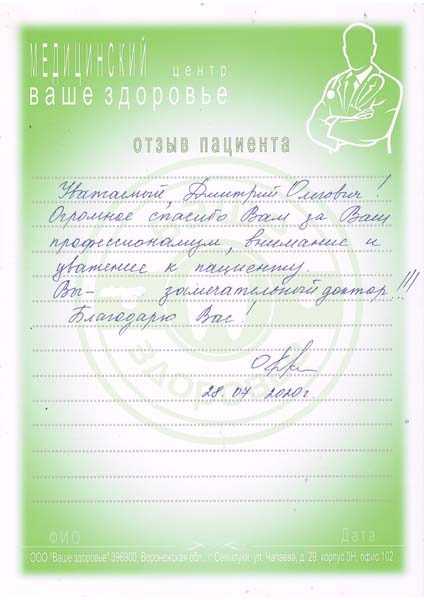 МЕДИЦИНСКИЙ центр
ваше здоровье
отзыв пациента
Уважаемый, Дмитрий Олегович!
Огромное спасибо Вам за Ваш
профессионализм, внимание и
уважение к пациенту.
Вы- замечательный доктор!!!
Благодарю Вас!
28.07 2020г.
ФИО Дата
ООО "Ваше здоровье" 396900 Воронежская обл., г. Семилуки, ул. Чапаева, д. 29, корпус 3Н, офис 102